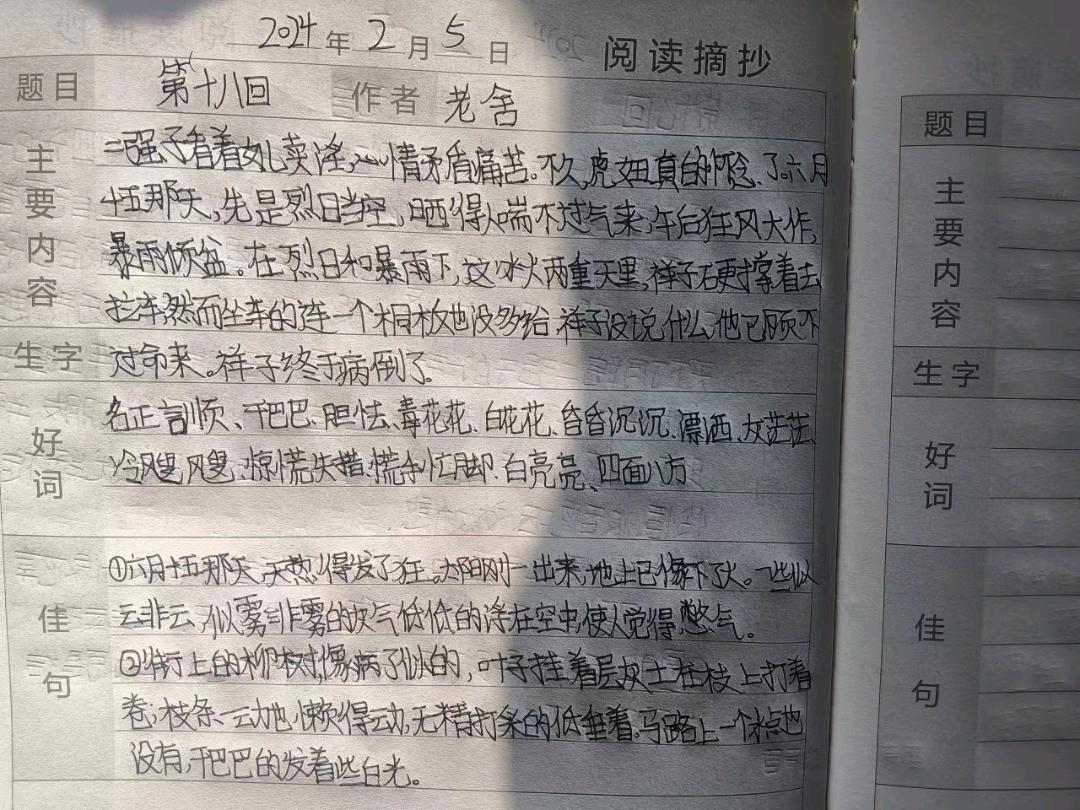 2024年2月5日 阅读摘抄
题目 第十八回 作者 老舍
主要内容
二强子看着女儿卖淫,心情矛盾痛苦。不久,虎妞真的怀念了.六月
十五那天,先是烈日当空,晒得人喘不过气来,午后狂风大作,
暴雨倾盆。在烈日和暴雨下,这冰火两重天里,祥子硬撑着去
拉车,然而坐车的连一个铜板也没多给.祥子没说什么,他已顾不
过命来。祥子终于病倒了.
生字
好词
名正言顺、干巴巴、胆怯、毒花花、白花花、昏昏沉沉、漂洒、茫茫、
冷飕飕、惊慌失措、慌手忙脚、白亮亮、四面八方
佳句
①六月十五那天,天热得发了狂。太阳刚一出来,地上已像下了火。一些似
云非云,似雾非雾的灰气低低的浮在空中,使人觉得憋气。
②街上的柳树,像病了似的,叶子挂着层灰土在枝上打着
卷;枝条一动也懒得动,无精打采的低垂着。马路上一个水点也
没有,干巴巴的发着些白光。
题目
主要内容
生字
好词
佳句